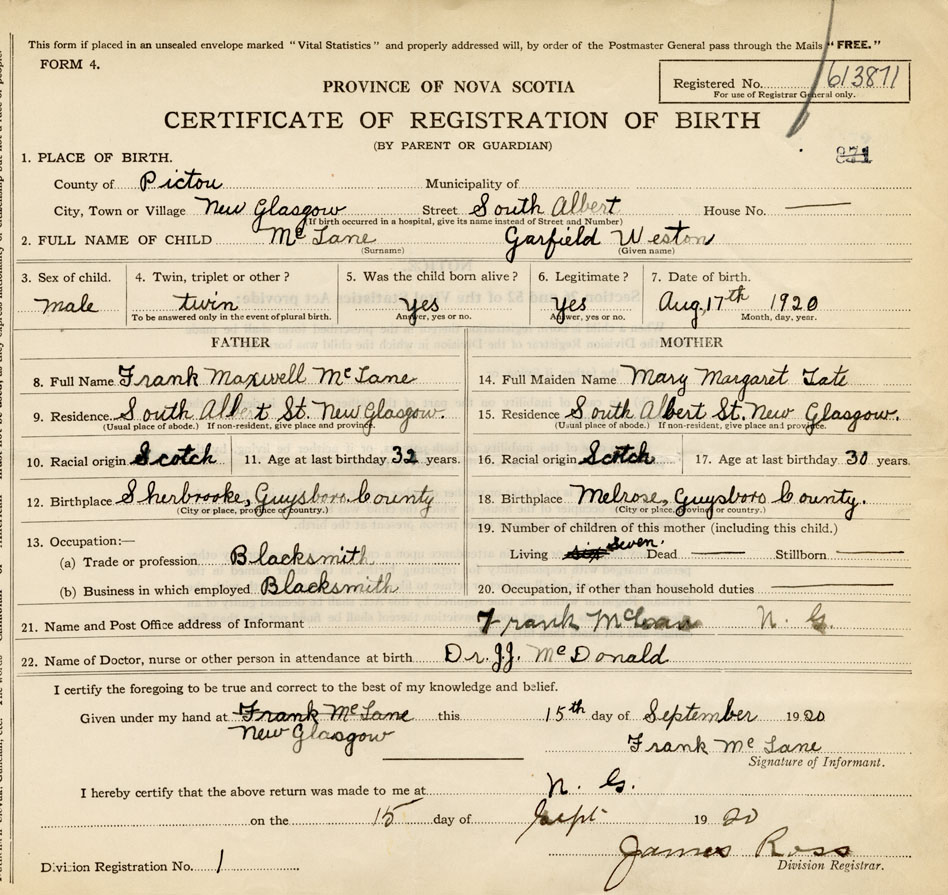 This form if placed in an unsealed envelope marked "Vital Statistics" and properly addressed will, by order of the Postmaster General pass through the Mails "FREE."
FORM 4.
Registered No. 613871
For use of Registrar General only.
PROVINCE OF NOVA SCOTIA
CERTIFICATE OF REGISTRATION OF BIRTH
(BY PARENT OR GUARDIAN)
871
1. PLACE OF BIRTH.
County of Pictou Municipality of
City, Town or Village New Glasgow Street South Albert House No. —
(If birth occurred in a hospital, give its name instead of Street and Number)
2. FULL NAME OF CHILD McLane Garfield Weston
(Surname) (Given name)
3. Sex of child. 4. Twin, triplet or other? 5. Was the child born alive? 6. Legitimate? 7. Date of birth.
Male twin Yes Yes Aug, 17th 1920
To be answered only in the event of plural birth. Answer, yes or no. Answer, yes or no. Month, day, year.
FATHER MOTHER
8. Full Name Frank Maxwell McLane 14. Full Maiden Name Mary Margaret Tate
9. Residence. South Albert St. New Glasgow. 15. Residence South Albert St. New Glasgow.
(Usual place of abode.) If non-resident, give place and province. (Usual place of abode.) If non-resident, give place and province.
10. Racial origin Scotch 11. Age at last birthday 32 years. 16. Racial origin Scotch 17. Age at last birthday 30 years.
12. Birthplace Sherbrooke, Guysboro County 18. Birthplace Melrose, Guysboro County.
(City or place, province or country.) (City or place, province or country.)
19. Number of children of this mother (including this child.)
13. Occupation:—
Living six seven. Dead — Stillborn —
(a) Trade or profession Blacksmith
(b) Business in which employed Blacksmith 20. Occupation, if other than household duties —
21. Name and Post Office address of Informant Frank McLane N. G.
22. Name of Doctor, nurse or other person in attendance at birth Dr. J.J. McDonald
I certify the foregoing to be true and correct to the best of my knowledge and belief.
Given under my hand at Frank McLane this 15th day of September 1920
New Glasgow Frank McLane
Signature of Informant.
I hereby certify that the above return was made to me at N. G.
on the 15 day of Sept 1920
James Ross
Division Registration No. 1 Division Registrar.